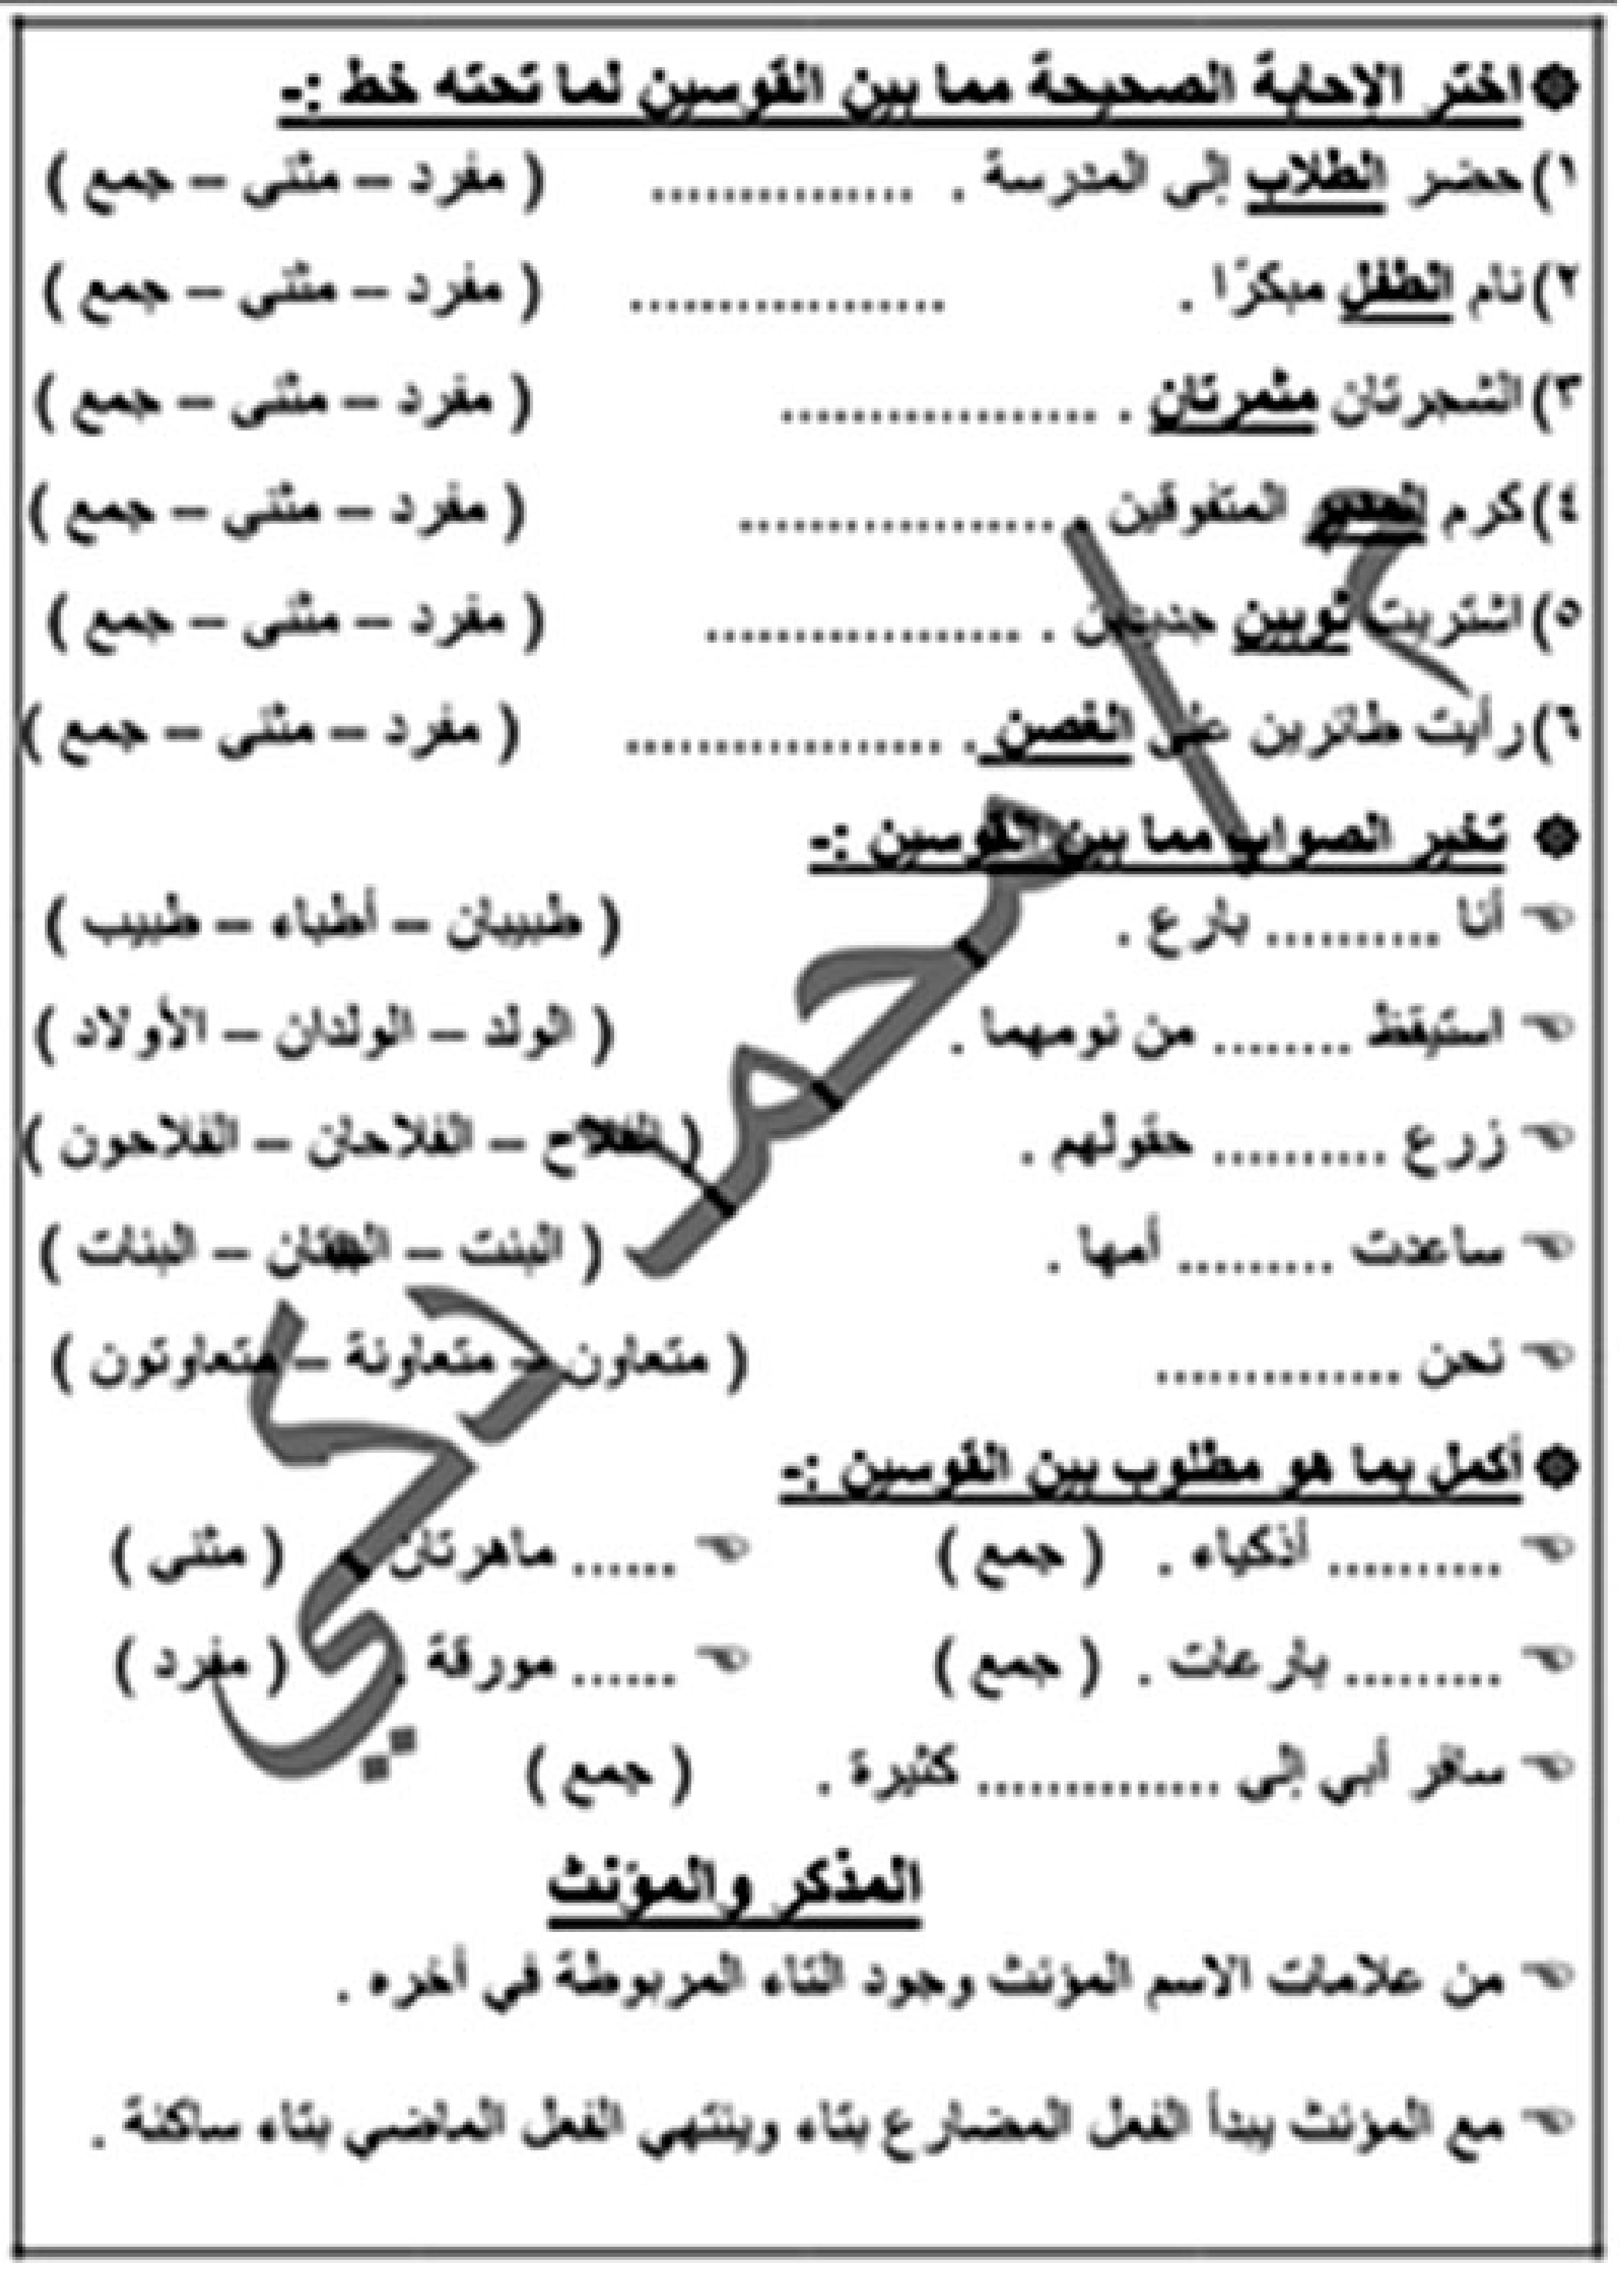 اختر الإجابة الصحيحة مما بين القوسين لما تحته خط :-
١) حضر الطلاب إلى المدرسة . ............... ( مفرد – مثنى – جمع )
٢) نام الطفل مبكرًا . .................. ( مفرد – مثنى – جمع )
٣) الشجرتان مثمرتان . .................. ( مفرد – مثنى – جمع )
٤) كرم المدير المتفوقين . .................. ( مفرد – مثنى – جمع )
٥) اشتريت ثوبين جديدين . .................. ( مفرد – مثنى – جمع )
٦) رأيت طائرين على الغصن . .................. ( مفرد – مثنى – جمع )
تخير الصواب مما بين القوسين :-
أنا .......... بارع . ( طبيبان – أطباء – طبيب )
استيقظ ........ من نومهما . ( الولد – الولدان – الأولاد )
زرع .......... حقولهم . ( الفلاح – الفلاحان – الفلاحون )
ساعدت ......... أمها . ( البنت – البنتان – البنات )
نحن .............. ( متعاون – متعاونة – متعاونون )
أكمل بما هو مطلوب بين القوسين :-
.......... أذكياء . ( جمع ) ...... ماهرتان . ( مثنى )
......... بارعات . ( جمع ) ...... مورقة . ( مفرد )
سافر أبي إلى .............. كثيرة . ( جمع )
المذكر والمؤنث
من علامات الاسم المؤنث وجود التاء المربوطة في أخره .
مع المؤنث يبدأ الفعل المضارع بتاء وينتهي الفعل الماضي بتاء ساكنة .